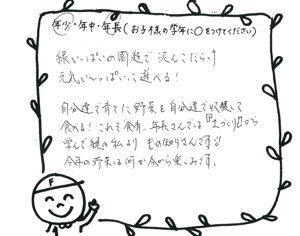 年少・年中・年長(お子様の学年に○をつけてください)
緑いっぱいの園庭で泥んこだらけ
元気い〜っぱいに遊べる!
自分達で育てた野菜を自分達で収穫して
食べる! これぞ食育 年長さんでは『土づくり』から
学んで親の私より もの知りさんです
今年の野菜は何か今から楽しみです。
F